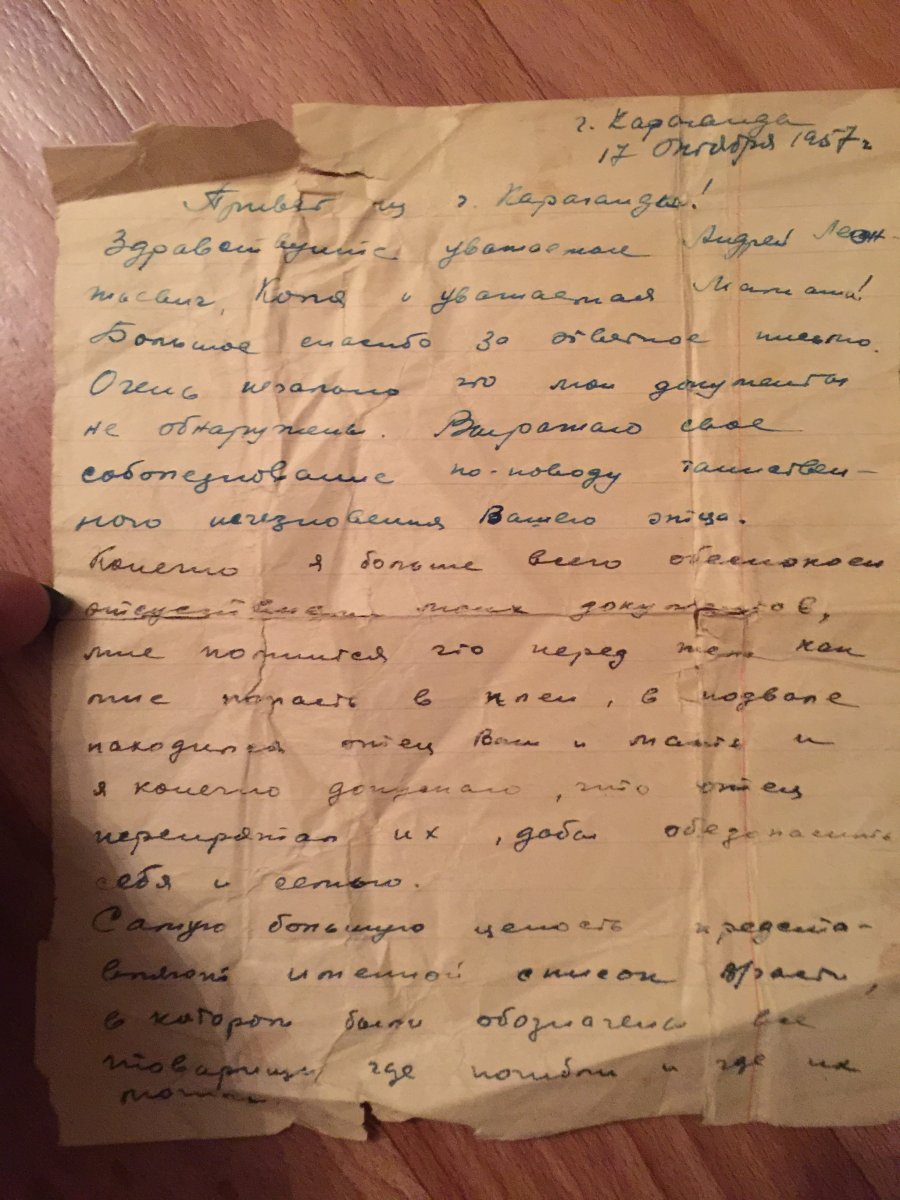 г. Караганда
17 октября 1957 г
Привет из г. Караганды!
Здравствуйте уважаемые Андрей Леон-
тьевич, Коля и уважаемая Мамаша!
Большое спасибо за ответное письмо.
Очень печально что мои документы
не обнаружены. Выражаю свое
соболезнование по-поводу таинствен-
ного исчезновения Вашего отца.
Конечно я больше всего обеспокоен
отсутствием моих документов,
мне помнится что перед тем как
мне попасть в плен, в подвале
находился отец Ваш и мать и
я конечно допускаю, что отец
перепрятал их, дабы обезопасить
себя и семью.
Самую большую ценость предста-
вляют именной список части,
в котором были обозначены все
товарищи где погибли и где их
могилы